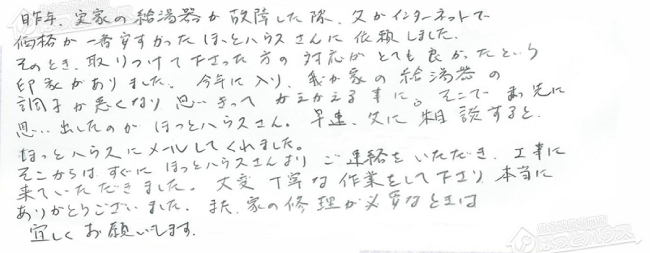 昨年、実家の給湯器が故障した際、父がインターネットで
価格が一番安すかったほっとハウスさんに依頼しました。
そのとき、取りつけて下さった方の対応がとても良かったという
印象がありました。今年に入り、我が家の給湯器の
調子が悪くなり思いきってかえかえる事に。そこでまっ先に
思い出したのがほっとハウスさん。早速、父に相談すると、
ほっとハウスにメールしてくれました。
そこからはすぐにほっとハウスさんよりご連絡をいただき、工事に
来ていただきました。大変丁寧な作業をして下さり、本当に
ありがとうございました。また、家の修理が必要なときは
宜しくお願いします。